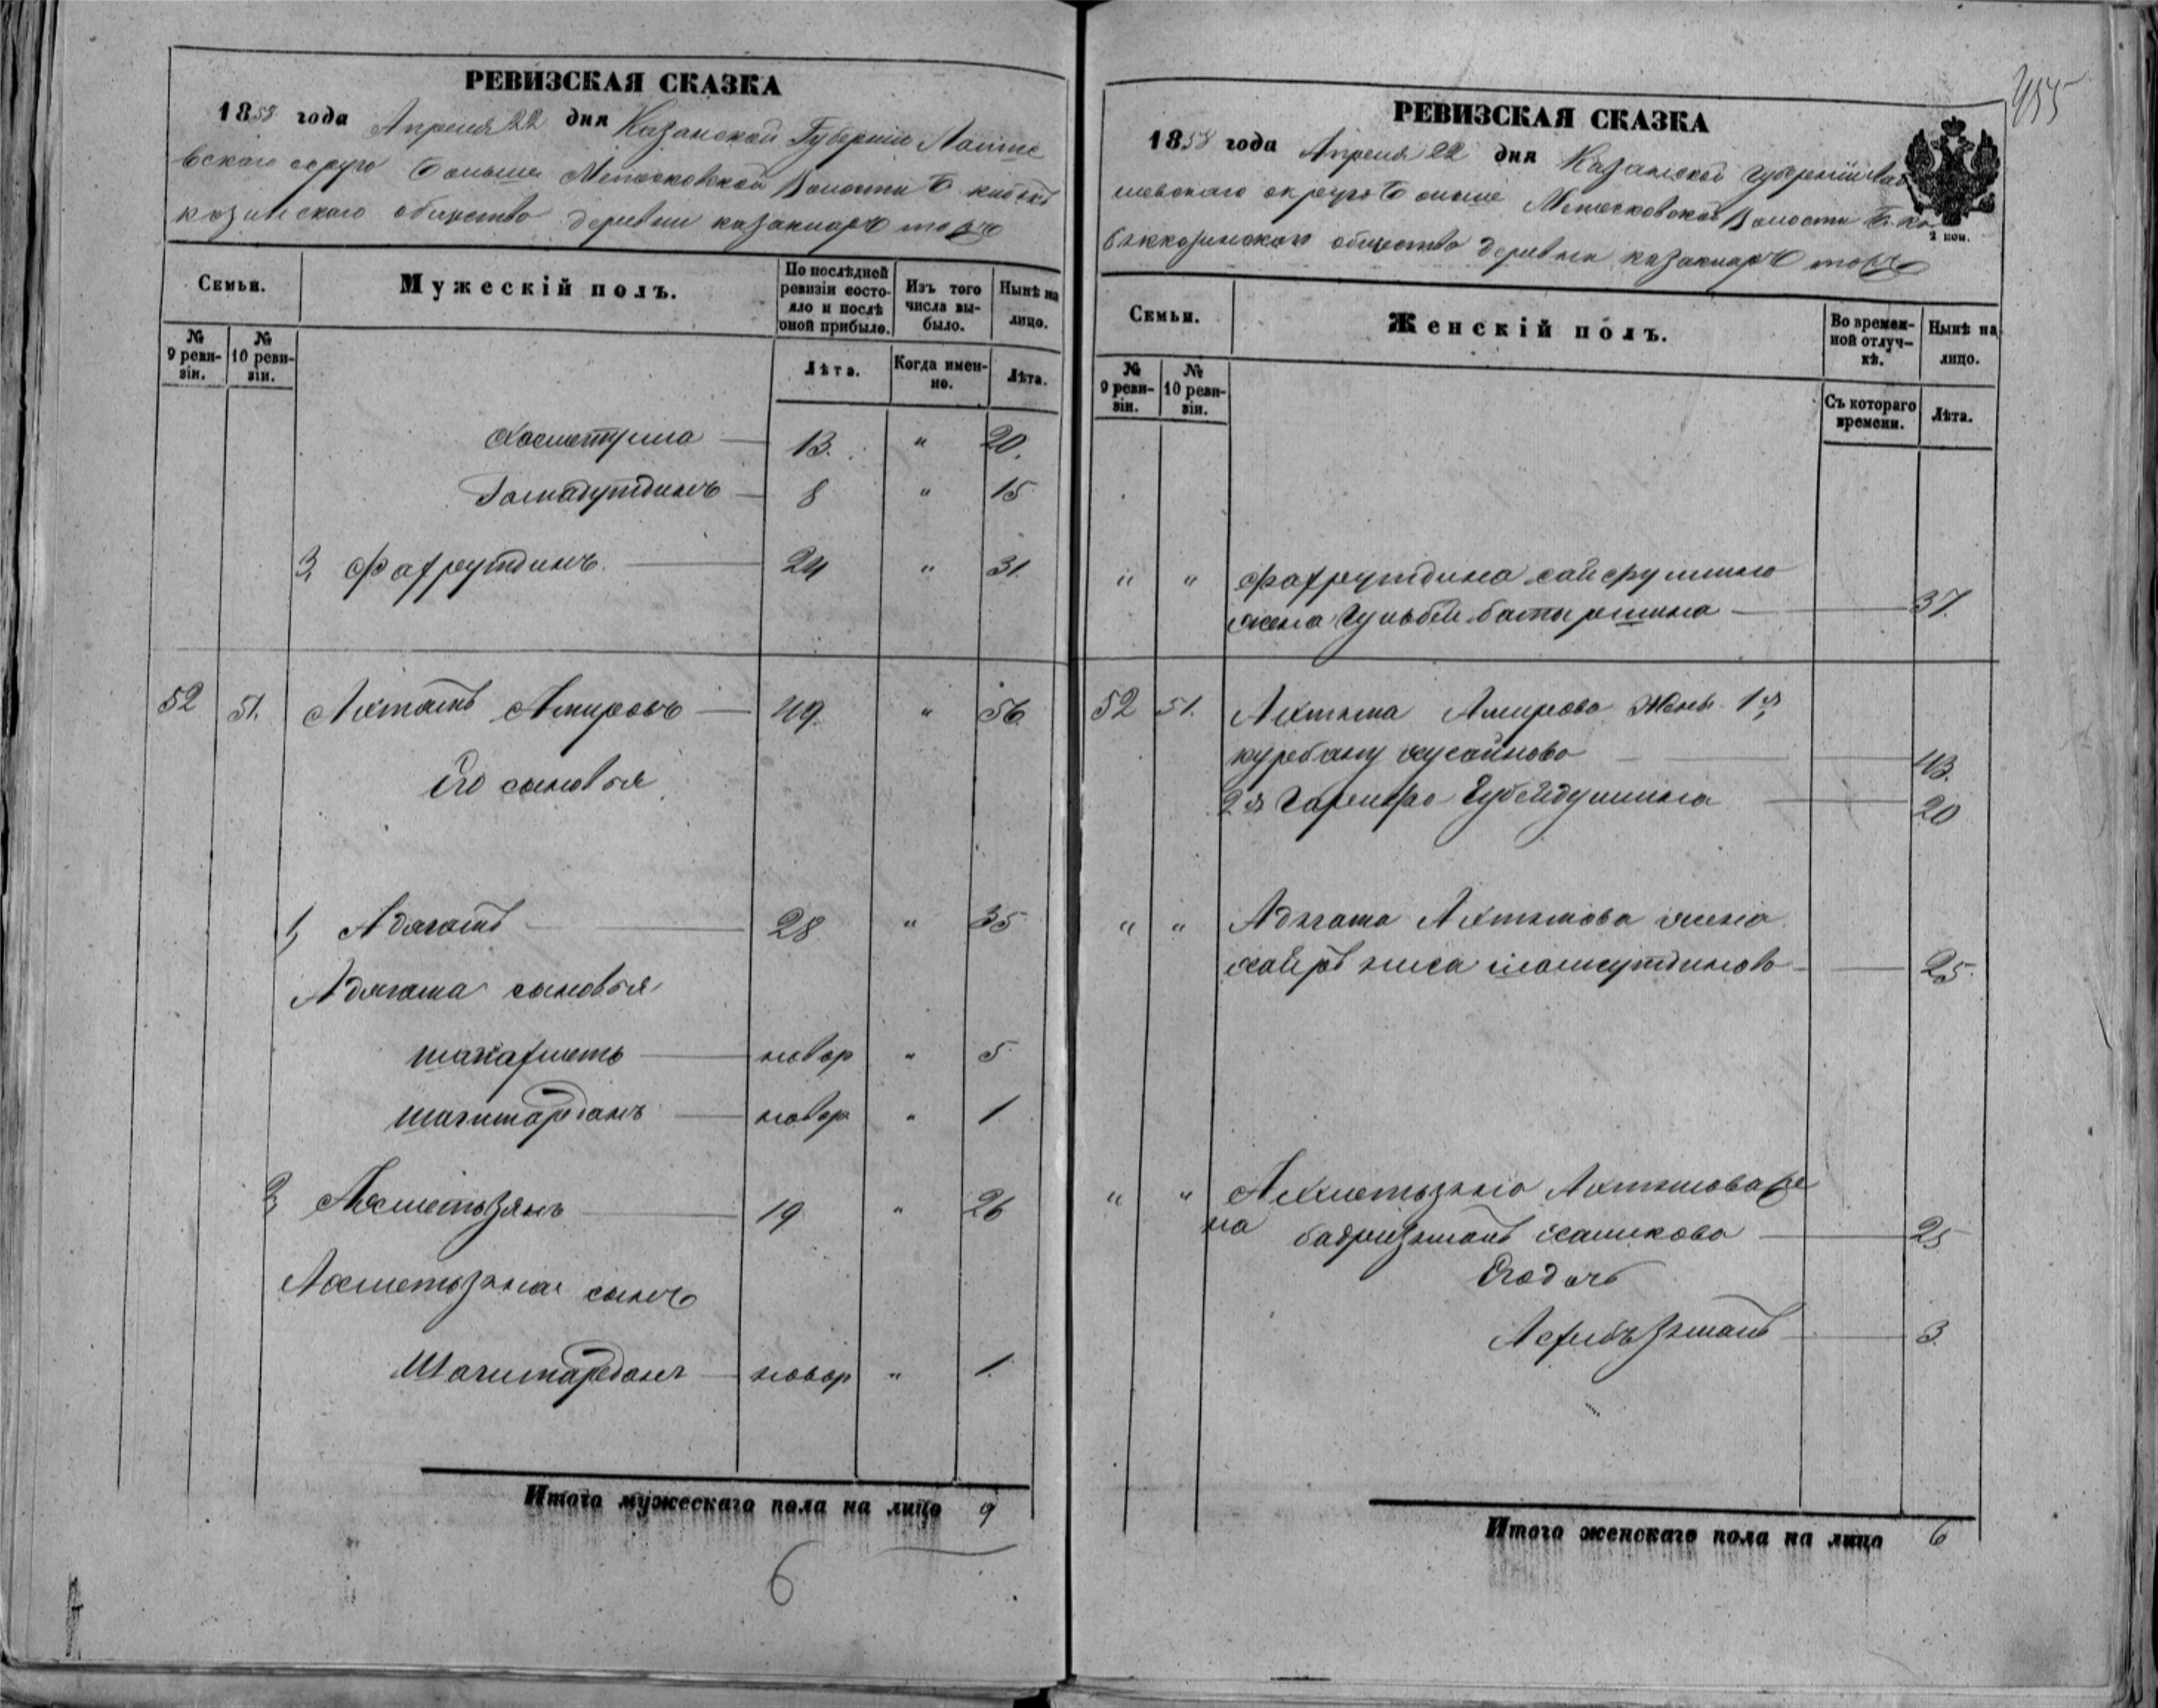 РЕВИЗСКАЯ СКАЗКА
1858 года Апреля 22 дня Казанской Губернии Лаише
вскаго округа Больше Меточковской Волости Б.
казинскаго общества деревни казакларъ
Семьи.
Мужескій полъ.
По послѣдней ревизіи состояло и послѣ оной прибыло.
Изъ того числа выбыло.
Нынѣ на лицо.
№ 9 ревизіи.
№ 10 ревизіи.
Лѣта.
Когда именно.
Лѣта.
Ахметша 13. " 20.
8 " 15
3, Фахрутдинъ 24 " 31.
52 51. Ахтямъ Амировъ 49. " 56.
Его сыновья
1, Адягамъ 28 " 35
Адягама сыновья
шахахметъ новор " 5
шагимарданъ новор " 1
2, Ахметьзянъ 19 " 26
Ахметьзяна сынъ
Шагимарданъ новор " 1.
Итого мужескаго пола на лицо 9
6
455
РЕВИЗСКАЯ СКАЗКА
1858 года Апреля 22 дня Казанской губерніи Лаи
шевскаго округа Больше Меточковской Волости Б.
общества деревни казакларъ
2 коп.
Семьи.
Женскій полъ.
Во временной отлучкѣ.
Нынѣ на лицо.
№ 9 ревизіи.
№ 10 ревизіи.
Съ котораго времени.
Лѣта.
" " Фахрутдина сайфуллина
жена Гульбей батыршина 37.
52 51. Ахтяма Амирова Жены 1я,
курбану хусаинова 43.
2я Губейдуллина 20
" " Адягама Ахтямова жена
хайрѣ ниса шамсутдинова 25.
" " Ахметьзяна Ахтямова же
на бадризямалъ халикова 25
Егодочь
3.
Итого женскаго пола на лицо 6